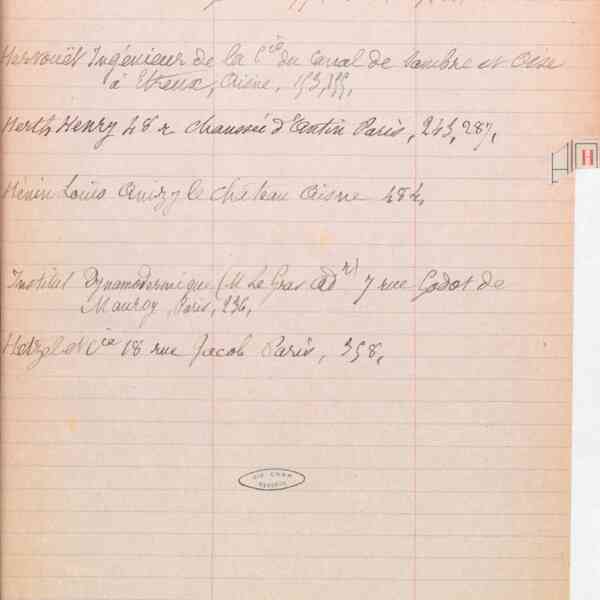 Hervouët Ingénieur de la Cie du Canal de Sambre et Oise
à Etreux, Aisne, 153,155,
Herth Henry 48 r. chaussée d'Antin Paris, 243, 287,
H
Hénin Louis Anizy le château Aisne 484,
Institut Dynamodermique (M Le Gras Adr) 7 rue Godot de
Mauroy, Paris, 236,
Hetzel et Cie 18 rue Jacob Paris, 358,
BIB CNAM
RESERVE